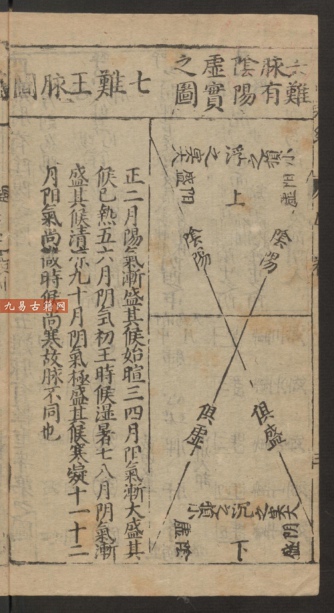 六難
脉有
陰陽
虛實
之圖
浮之
上
陰陽
陰陽
俱盛
俱虛
沉之
下
七難王脉圖
正二月陽氣漸盛其候始暄三四月阳氣漸大盛其
候已熱五六月阴氣初王時候湿暑七八月阴氣漸
盛其候清凉九十月阴氣極盛其候寒凝十一十二
月阳氣尚微時候尚寒故脉不同也
九易古籍网